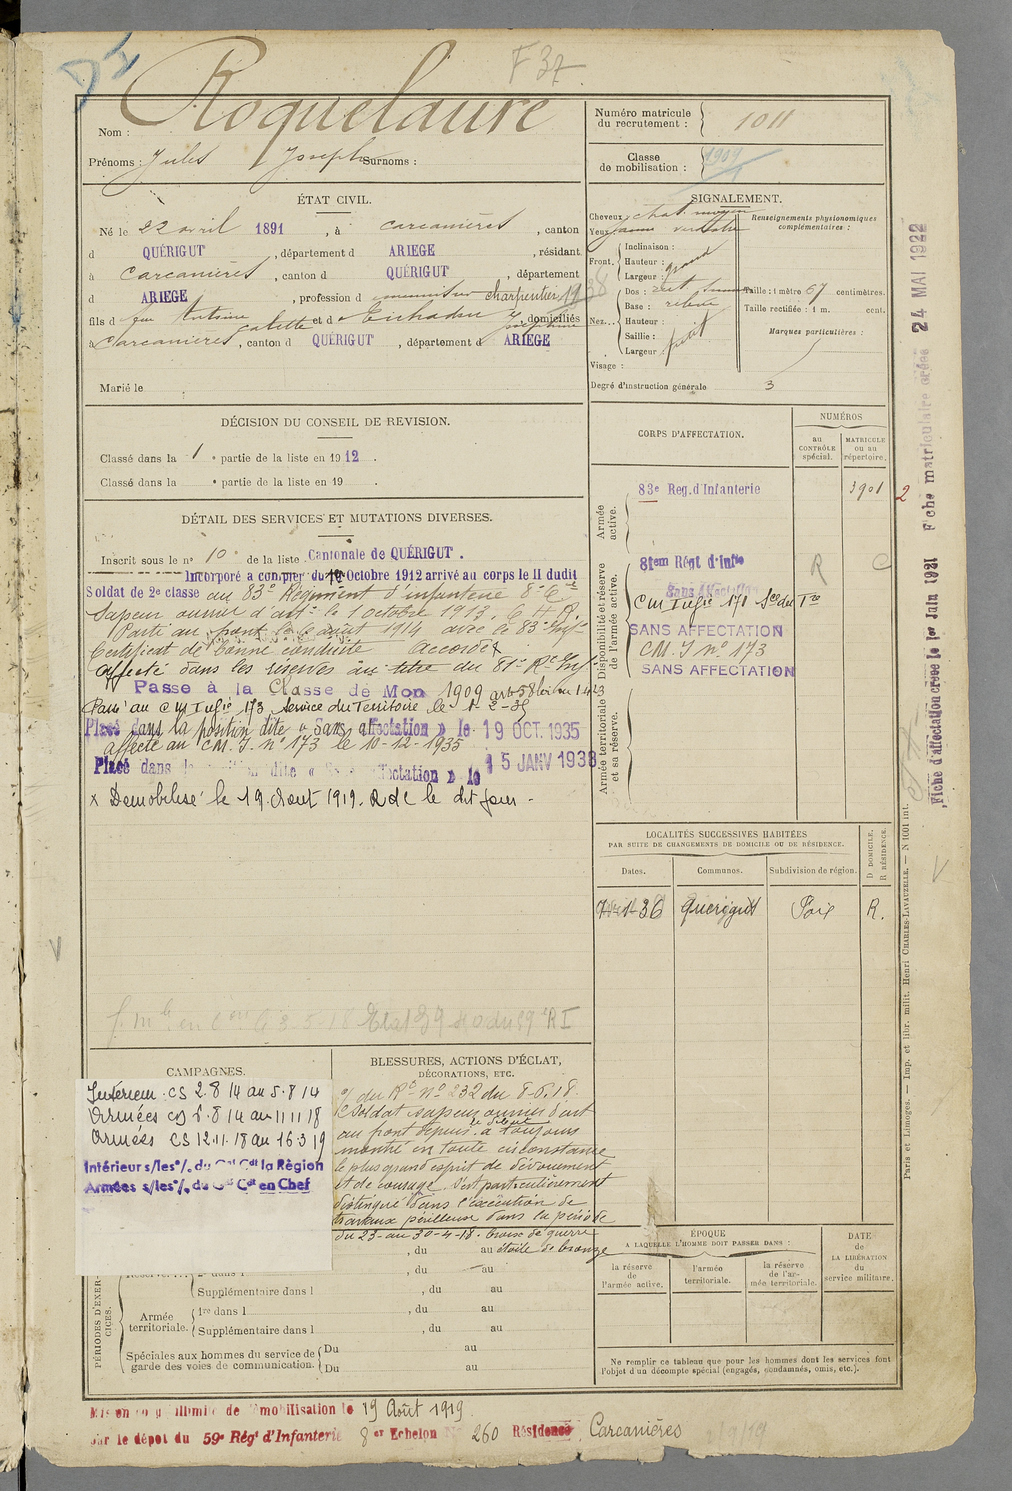 F 37
Roquelaure
Nom :
Prénoms : Jules Joseph Surnoms :
Numéro matricule
du recrutement : 1011
Classe
de mobilisation : 1909
ÉTAT CIVIL.
Né le 22 avril 1891, à Carcanières, canton
d QUÉRIGUT, département d ARIEGE, résidant
à Carcanières, canton d QUÉRIGUT, département
d ARIEGE, profession d charpentier 1938
fils d feu Antoine et d Joséphine, domiciliés
à Carcanières, canton d QUÉRIGUT, département d ARIEGE
Marié le
SIGNALEMENT.
Cheveux chat. moyen
Yeux jaune verdatre
Renseignements physionomiques
complémentaires :
Front.
Inclinaison :
Hauteur : grand
Largeur :
Nez...
Dos : rect.
Base : relevé
Hauteur :
Saillie : petit
Largeur :
Visage :
Taille : 1 mètre 67 centimètres.
Taille rectifiée : 1 m. cent.
Marques particulières :
Degré d'instruction générale 3
DÉCISION DU CONSEIL DE REVISION.
Classé dans la 1e partie de la liste en 1912.
Classé dans la e partie de la liste en 19 .
DÉTAIL DES SERVICES ET MUTATIONS DIVERSES.
Inscrit sous le n° 10 de la liste Cantonale de QUÉRIGUT.
Incorporé a compter du 10 Octobre 1912 arrivé au corps le 11 dudit
Soldat de 2e classe au 83e Régiment d'infanterie 8e Cie
Sapeur ouvrier d'art le 1 octobre 1913.
Parti au front le 6 août 1914 avec le 83e Inf
Certificat de bonne conduite Accordé x
Affecté dans les réserves au titre du 81e R. Inf
Passé à la Classe de Mob 1909 art 58
Passé au CM Infie 173 Service du Territoire le
Placé dans la position dite « Sans affectation » le 19 OCT. 1935
affecté au CM. I. n° 173 le 10-12-1935
Placé dans la position dite « Sans affectation » le 15 JANV 1938
x Démobilisé le 19 Aout 1919. R de le dit jour -
CORPS D'AFFECTATION.
NUMÉROS
au
CONTRÔLE
spécial.
MATRICULE
ou au
répertoire.
Armée
active.
83e Reg. d'Infanterie 3901
2
Disponibilité et réserve
de l'armée active.
81em Régt d'Infie R C
Sans Affectation
CM Infie 171 Sce du Tre
SANS AFFECTATION
CM. I n° 173
SANS AFFECTATION
Armée territoriale
et sa réserve.
LOCALITÉS SUCCESSIVES HABITÉES
PAR SUITE DE CHANGEMENTS DE DOMICILE OU DE RÉSIDENCE.
Dates.
Communes.
Subdivision de région.
D DOMICILE.
R RÉSIDENCE.
7-1-36 Querigut Foix R.
CAMPAGNES.
Intérieur CS 2.8 14 au 5.8 14
Armées CD 6.8 14 au 11 11 18
Armées CS 12.11.18 au 16 3 19
Intérieur s/les°/. du Gal Cdt la Région
Armées s/les°/. du Gal Cdt en Chef
BLESSURES, ACTIONS D'ÉCLAT,
DÉCORATIONS, ETC.
O/ du Rt N° 232 du 8.6.18.
Soldat sapeur ouvrier d'art
au front depuis le début a toujours
montré en toute circonstance
le plus grand esprit de dévouement
et de courage. S'est particulièrement
distingué dans l'exécution de
travaux périlleux dans la période
du 23- au 30-4-18. Croix de guerre
étoile de bronze
, du au
PÉRIODES D'EXERCICES.
Réserve... 2e dans l , du au
Supplémentaire dans l , du au
Armée
territoriale.
1re dans l , du au
Supplémentaire dans l , du au
Spéciales aux hommes du service de
garde des voies de communication.
Du au
Du au
ÉPOQUE
A LAQUELLE L'HOMME DOIT PASSER DANS :
la réserve
de
l'armée active.
l'armée
territoriale.
la réserve
de l'armée
territoriale.
DATE
DE
LA LIBÉRATION
du
service militaire.
Ne remplir ce tableau que pour les hommes dont les services font
l'objet d'un décompte spécial (engagés, condamnés, omis, etc.).
Mis en congé illimité de démobilisation le 19 Août 1919
par le dépôt du 59e Régt d'Infanterie 8 er Echelon N° 260 Résidence Carcanières
Fiche matriculaire créée 24 MAI 1922
Fiche d'affectation créée le 1er Juin 1921
Paris et Limoges. — Imp. et libr. milit. Henri CHARLES-LAVAUZELLE. — N 1001 int.